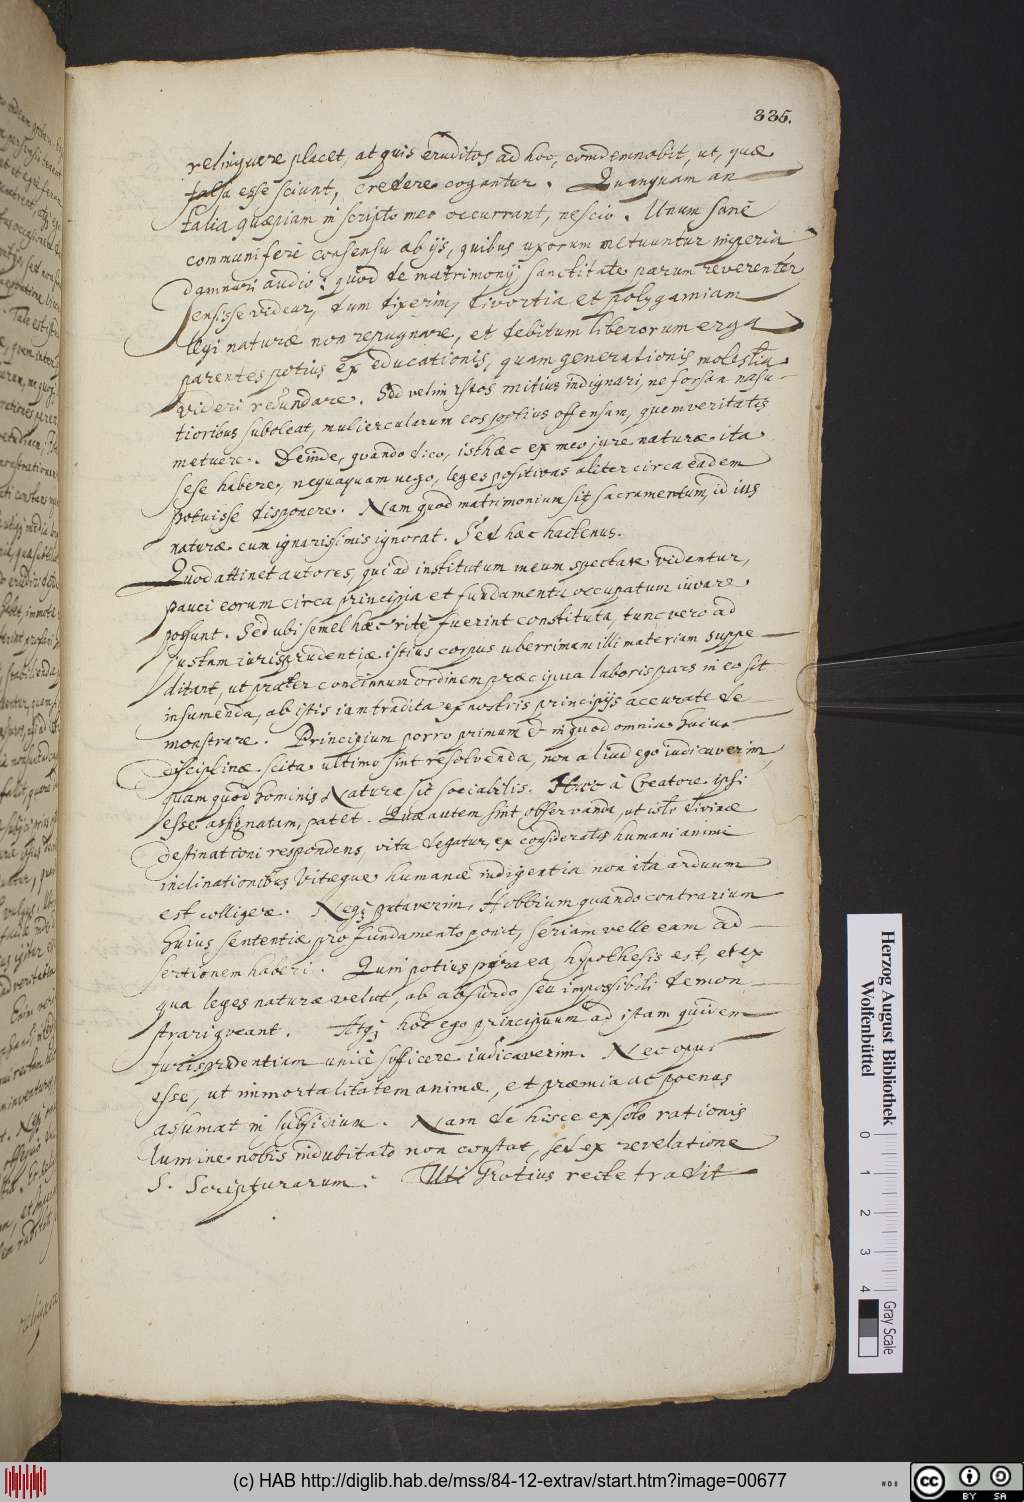 335.
relinquere placet, at quis eruditos ad hoc, comdemnabit, ut, quæ
falsa esse sciunt, credere cogantur. Quanquam an
talia quæpiam in scripto meo occurrant, nescio. Unum sanè
communi ferè consensu ab ijs, quibus uxorum metuuntur imperia
damnari audio: quod de matrimonij sanctitate parum reverenter
sensisse videar, dum dixerim, divortia et polygamiam
legi naturæ non repugnare, et debitum liberorum erga
parentes potius ex educationis, quam generationis molestia
videri redundare. Sed velim istos mitius indignari, ne forsan nasu-
tioribus suboleat, muliercularum eos potius offensam, quem veritatis
metuere. Deinde, quando dico, isthæc ex meo jure naturæ ita
sese habere, nequaquam nego, leges positivas aliter circa eadem
potuisse disponere. Nam quod matrimonium sit sacramentum, id ius
naturæ cum ignarissimis ignorat. Sed hæc hactenus.
Quod attinet autores, qui ad institutum meum spectare videntur,
pauci eorum circa principia et fundamenta occupatum iuvare
possunt. Sed ubi semel hæc ritè fuerint constituta, tunc vero ad
iustam iurisprudentiæ istius corpus uberrimam illi materiam suppe-
ditant, ut præter concinnum ordinem præcipua laboris pars in eo sit
insumenda, ab istis iam tradita ex nostris principijs accurate de-
monstrare. Principium porro primum & in quod omnia huius
disciplinæ scita ultimo sint resolvenda, non aliud ego iudicaverim,
quam quod hominis Natura sit sociabilis. Hanc à Creatore ipsi
esse assignatam, patet. Quæ autem sint observanda, ut isto divinæ
destinationi respondens vita degatur, ex consideratis humani animi
inclinationibus vitæque humanæ indigentia non ita arduum
est colligere. Neq; putaverim, Hobbium quando contrarium
huius sententiæ pro fundamento ponit, seriam velle eam ad-
sertionem haberi. Quin potius pura ea hypothesis est, et ex
qua leges naturæ velut, ab absurdo seu impossibili demon-
strari queant. Atq; hoc ego principium ad istam quidem
jurisprudentiam unicè sufficere iudicaverim. Nec opus
esse, ut immortalitatem animæ, et præmia ac poenas
asumat in subsidium. Nam de hisce ex solo rationis
lumine nobis indubitatò non constat, sed ex revelatione
S. Scripturarum: Uti Grotius recte tradit
Herzog August Bibliothek
Wolfenbüttel
0 1 2 3 4
Gray Scale
(c) HAB http://diglib.hab.de/mss/84-12-extrav/start.htm?image=00677
cc BY SA